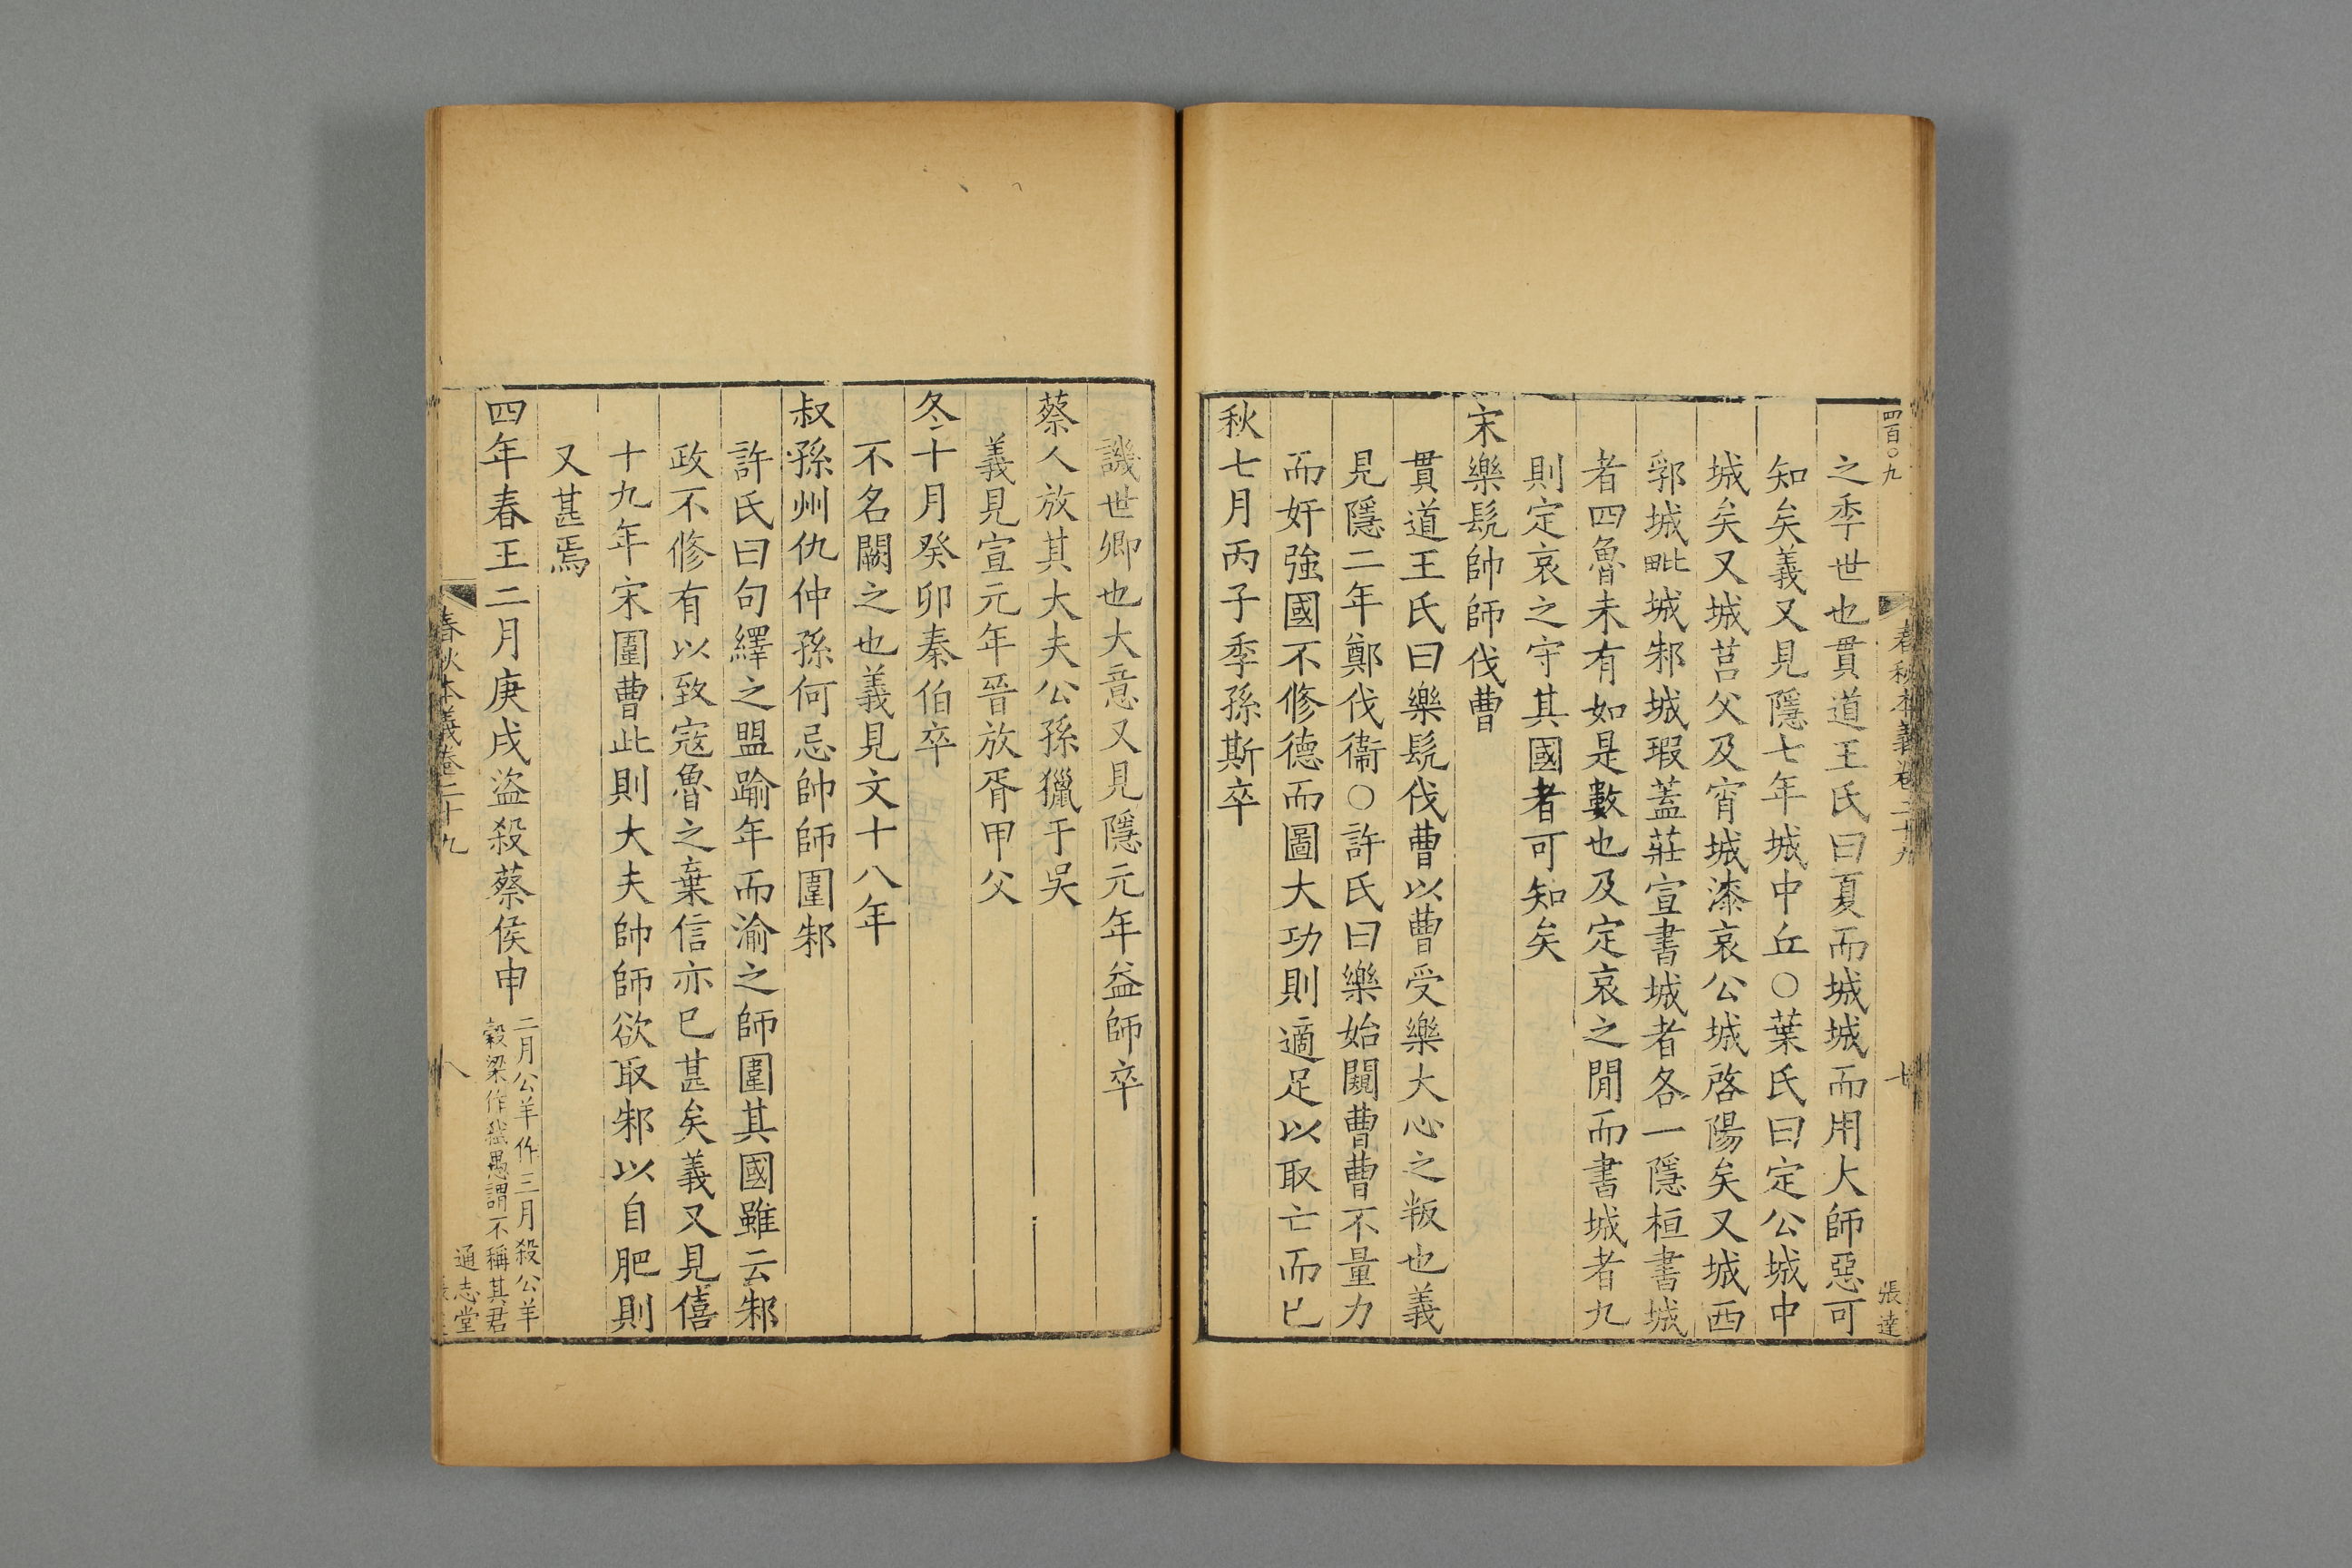 四百〇九
春秋本義卷二十九
七
張達
之季世也貫道王氏曰夏而城城而用大師惡可
知矣義又見隱七年城中丘○葉氏曰定公城中
城矣又城莒父及宵城漆哀公城啓陽矣又城西
郛城毗城邾城瑕蓋莊宣書城者各一隱桓書城
者四魯未有如是數也及定哀之閒而書城者九
則定哀之守其國者可知矣
宋樂髡帥師伐曹
貫道王氏曰樂髡伐曹以曹受樂大心之叛也義
見隱二年鄭伐衞○許氏曰樂始闚曹曹不量力
而奸強國不修德而圖大功則適足以取亡而已
秋七月丙子季孫斯卒
譏世卿也大意又見隱元年益師卒
蔡人放其大夫公孫獵于吳
義見宣元年晉放胥甲父
冬十月癸卯秦伯卒
不名闕之也義見文十八年
叔孫州仇仲孫何忌帥師圍邾
許氏曰句繹之盟踰年而渝之師圍其國雖云邾
政不修有以致寇魯之棄信亦已甚矣義又見僖
十九年宋圍曹此則大夫帥師欲取邾以自肥則
又甚焉
四年春王二月庚戌盜殺蔡侯申
二月公羊作三月殺公羊
穀梁作弑愚謂不稱其君
春秋本義卷二十九
八
通志堂